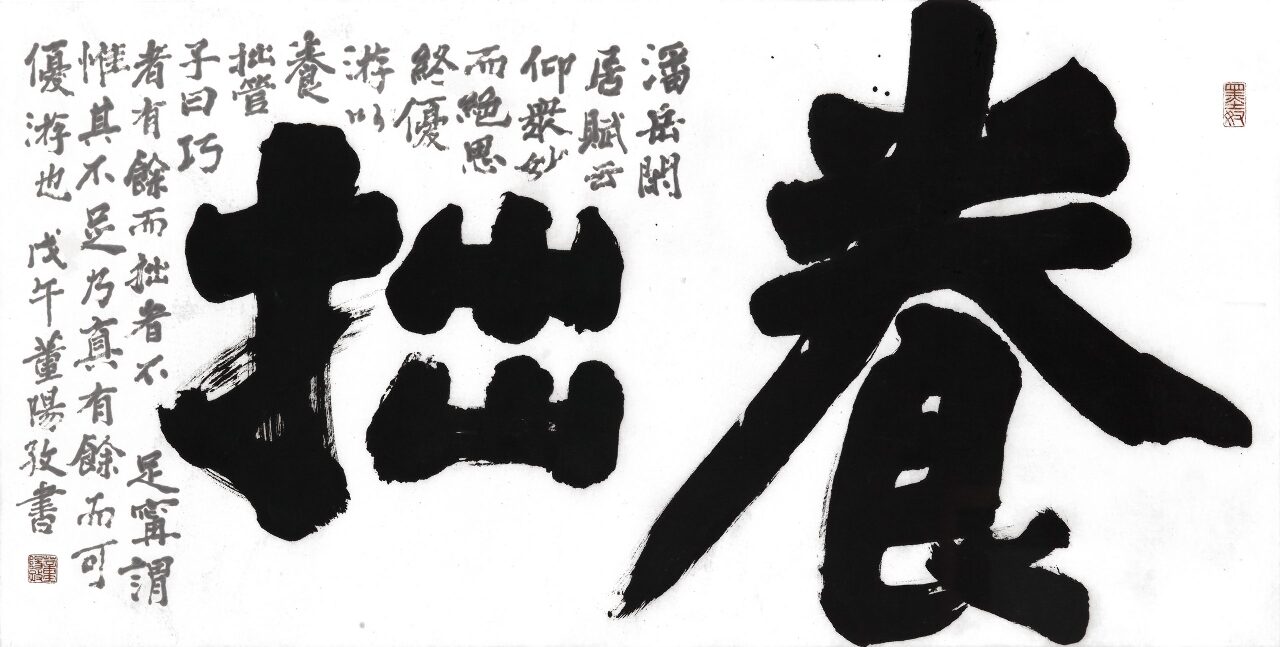 養拙
潘岳閑
居賦云
仰衆妙
而絕思
終優
游以
養
拙管
子曰巧
者有餘而拙者不足寧謂
惟其不足乃真有餘而可
優游也 戊午董陽孜書